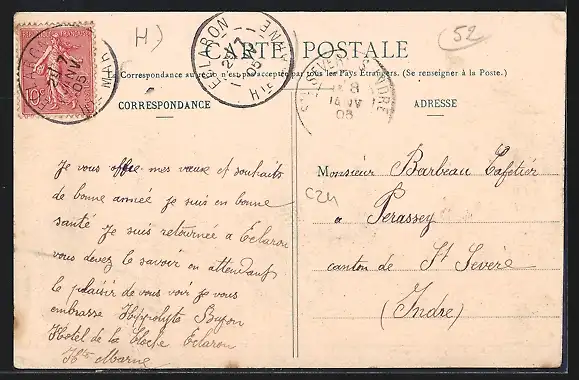 H)
52
CARTE POSTALE
La Correspondance au recto n'est pas acceptée par tous les Pays Étrangers. (Se renseigner à la Poste.)
CORRESPONDANCE
ADRESSE
ECLARON
7
05
HTE MARNE
10
INDRE
8
05
Je vous offre mes vœux et souhaits
de bonne année je suis en bonne
santé Je suis retournée a Eclaron
vous devez le savoir en attendant
le plaisir de vous voir je vous
embrasse Hippolyte Bajon
Hotel de la Cloche Eclaron
Hte Marne
Monsieur Barbeau Cafetier
C24
a Perassey
canton de St Severe
(Indre)